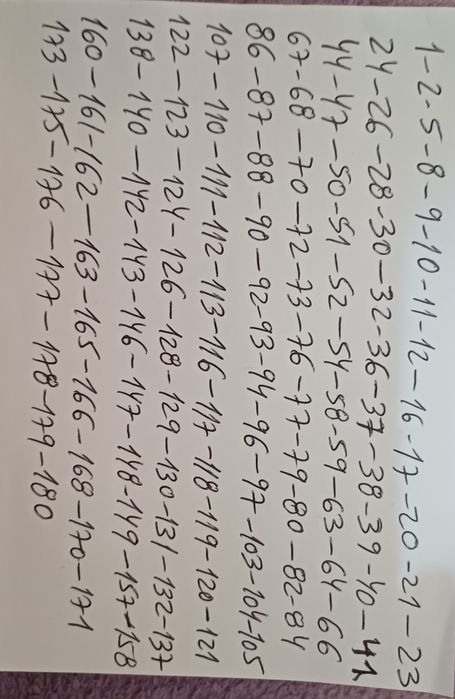 1-2-5-8-9-10-11-12-16-17-20-21-23
24-26-28-30-32-36-37-38-39-40-41
44-47-50-51-52-54-58-59-63-64-66
67-68-70-72-73-76-77-79-80-82-84
86-87-88-90-92-93-94-96-97-103-104-105
107-110-111-112-113-116-117-118-119-120-121
122-123-124-126-128-129-130-131-132-137
138-140-142-143-146-147-148-149-157-158
160-161-162-163-165-166-168-170-171
173-175-176-177-178-179-180